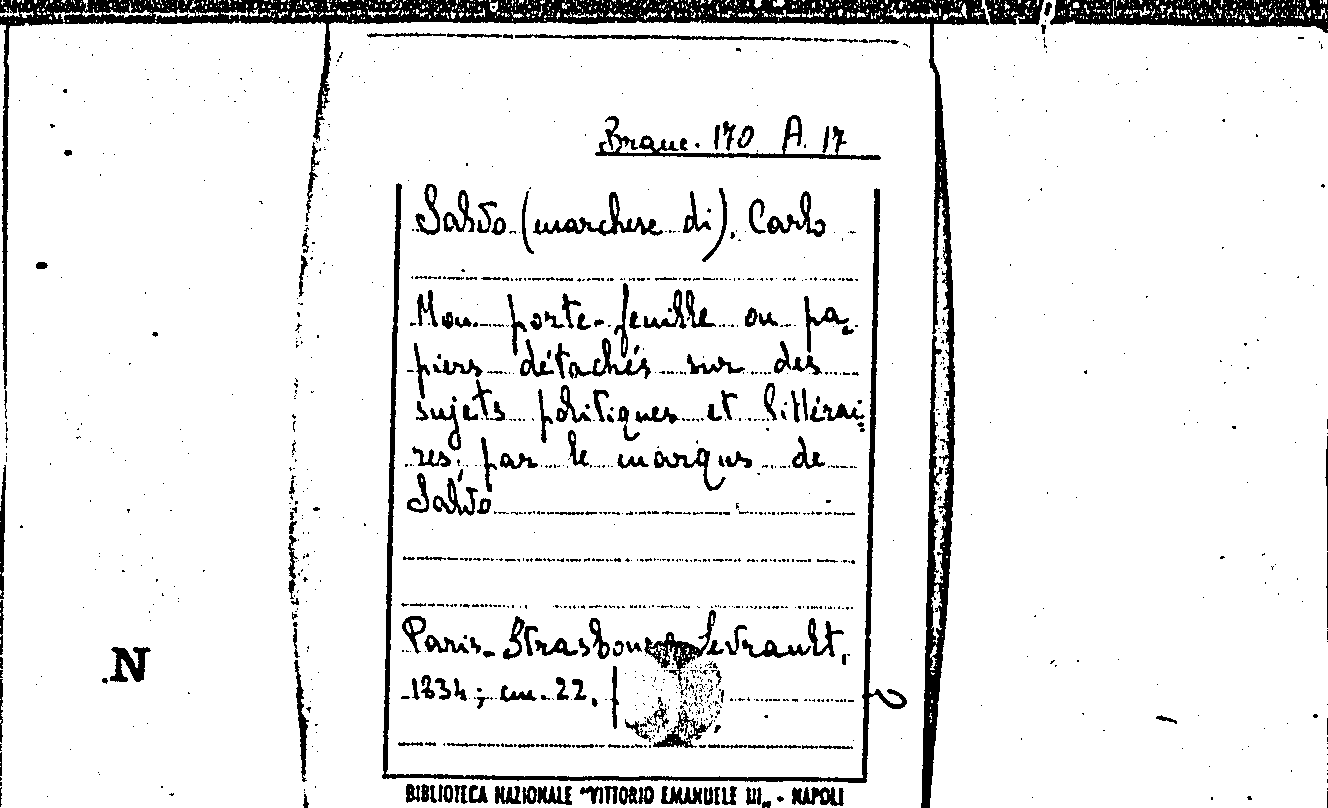 Branc. 170 A. 17
Salvo (marchese di), Carlo
Mon porte-feuille ou pa-
piers détachés sur des
sujets politiques et littérai-
res, par le marquis de
Salvo
Paris-Strasbourg, Levrault,
1834; cm. 22.
N
BIBLIOTECA NAZIONALE "VITTORIO EMANUELE III„ - NAPOLI